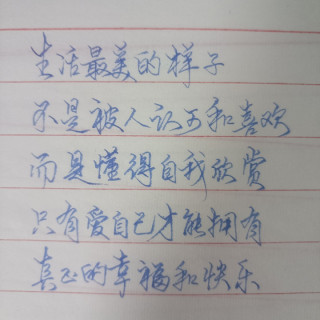 生活最美的样子
不是被人认可和喜欢
而是懂得自我欣赏
只有爱自己才能拥有
真正的幸福和快乐